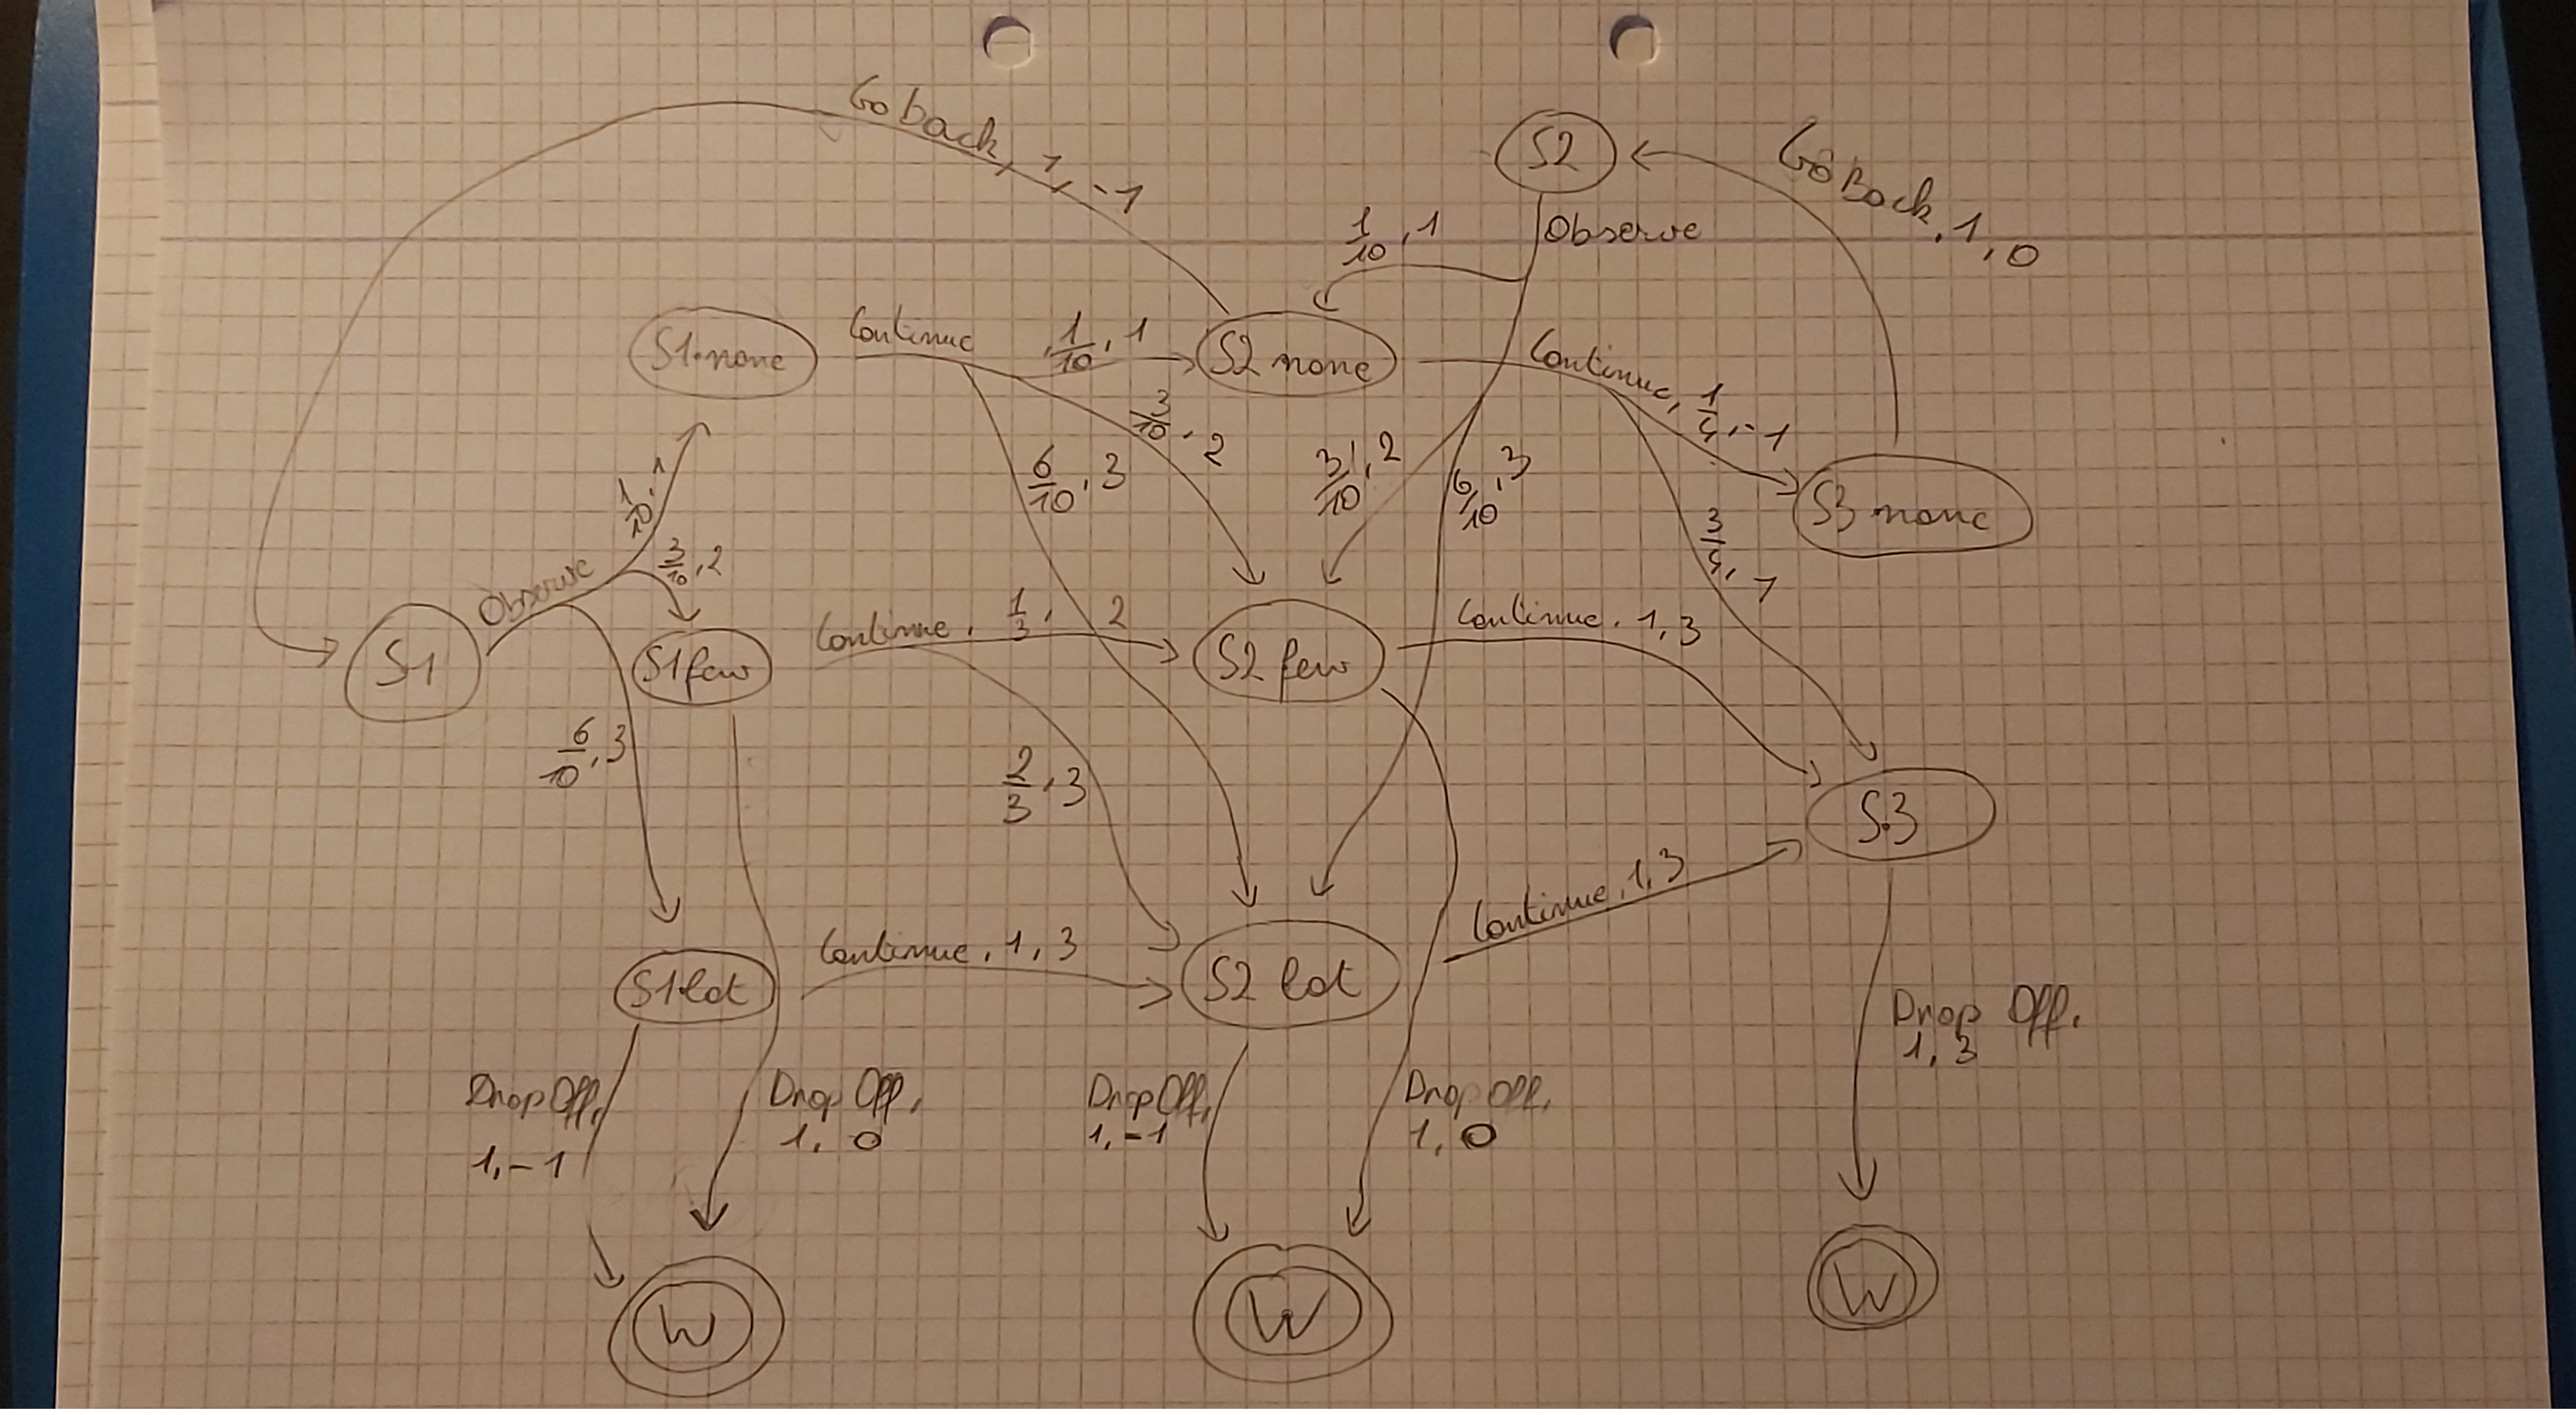 Go back, 1, -1
S2
Go Back, 1, 0
Observe
1/10, 1
S1 none
Continue, 1/10, 1
S2 none
Continue, 1/4, -1
3/10, 2
6/10, 3
3/10, 2
6/10, 3
S3 none
3/4,
1/10, 1
3/10, 2
Observe
S1
S1 few
Continue, 1/3, 2
S2 few
Continue, 1, 3
6/10, 3
2/3, 3
S3
S1 lot
Continue, 1, 3
S2 lot
Continue, 1, 3
Drop Off,
1, 3
Drop Off,
1, -1
Drop Off,
1, 0
Drop Off,
1, -1
Drop Off,
1, 0
W
W
W